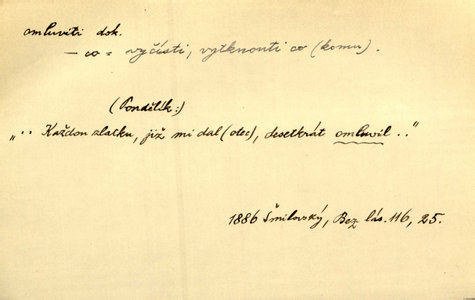 omluviti dok.
— co = vyčísti, vytknouti co (komu).
(Pondělík:)
„ ·· Každou zlatku, již mi dal (otec), desetkrát omluvil ·· "
1886 Šmilovský, Bez lás. 116, 25.